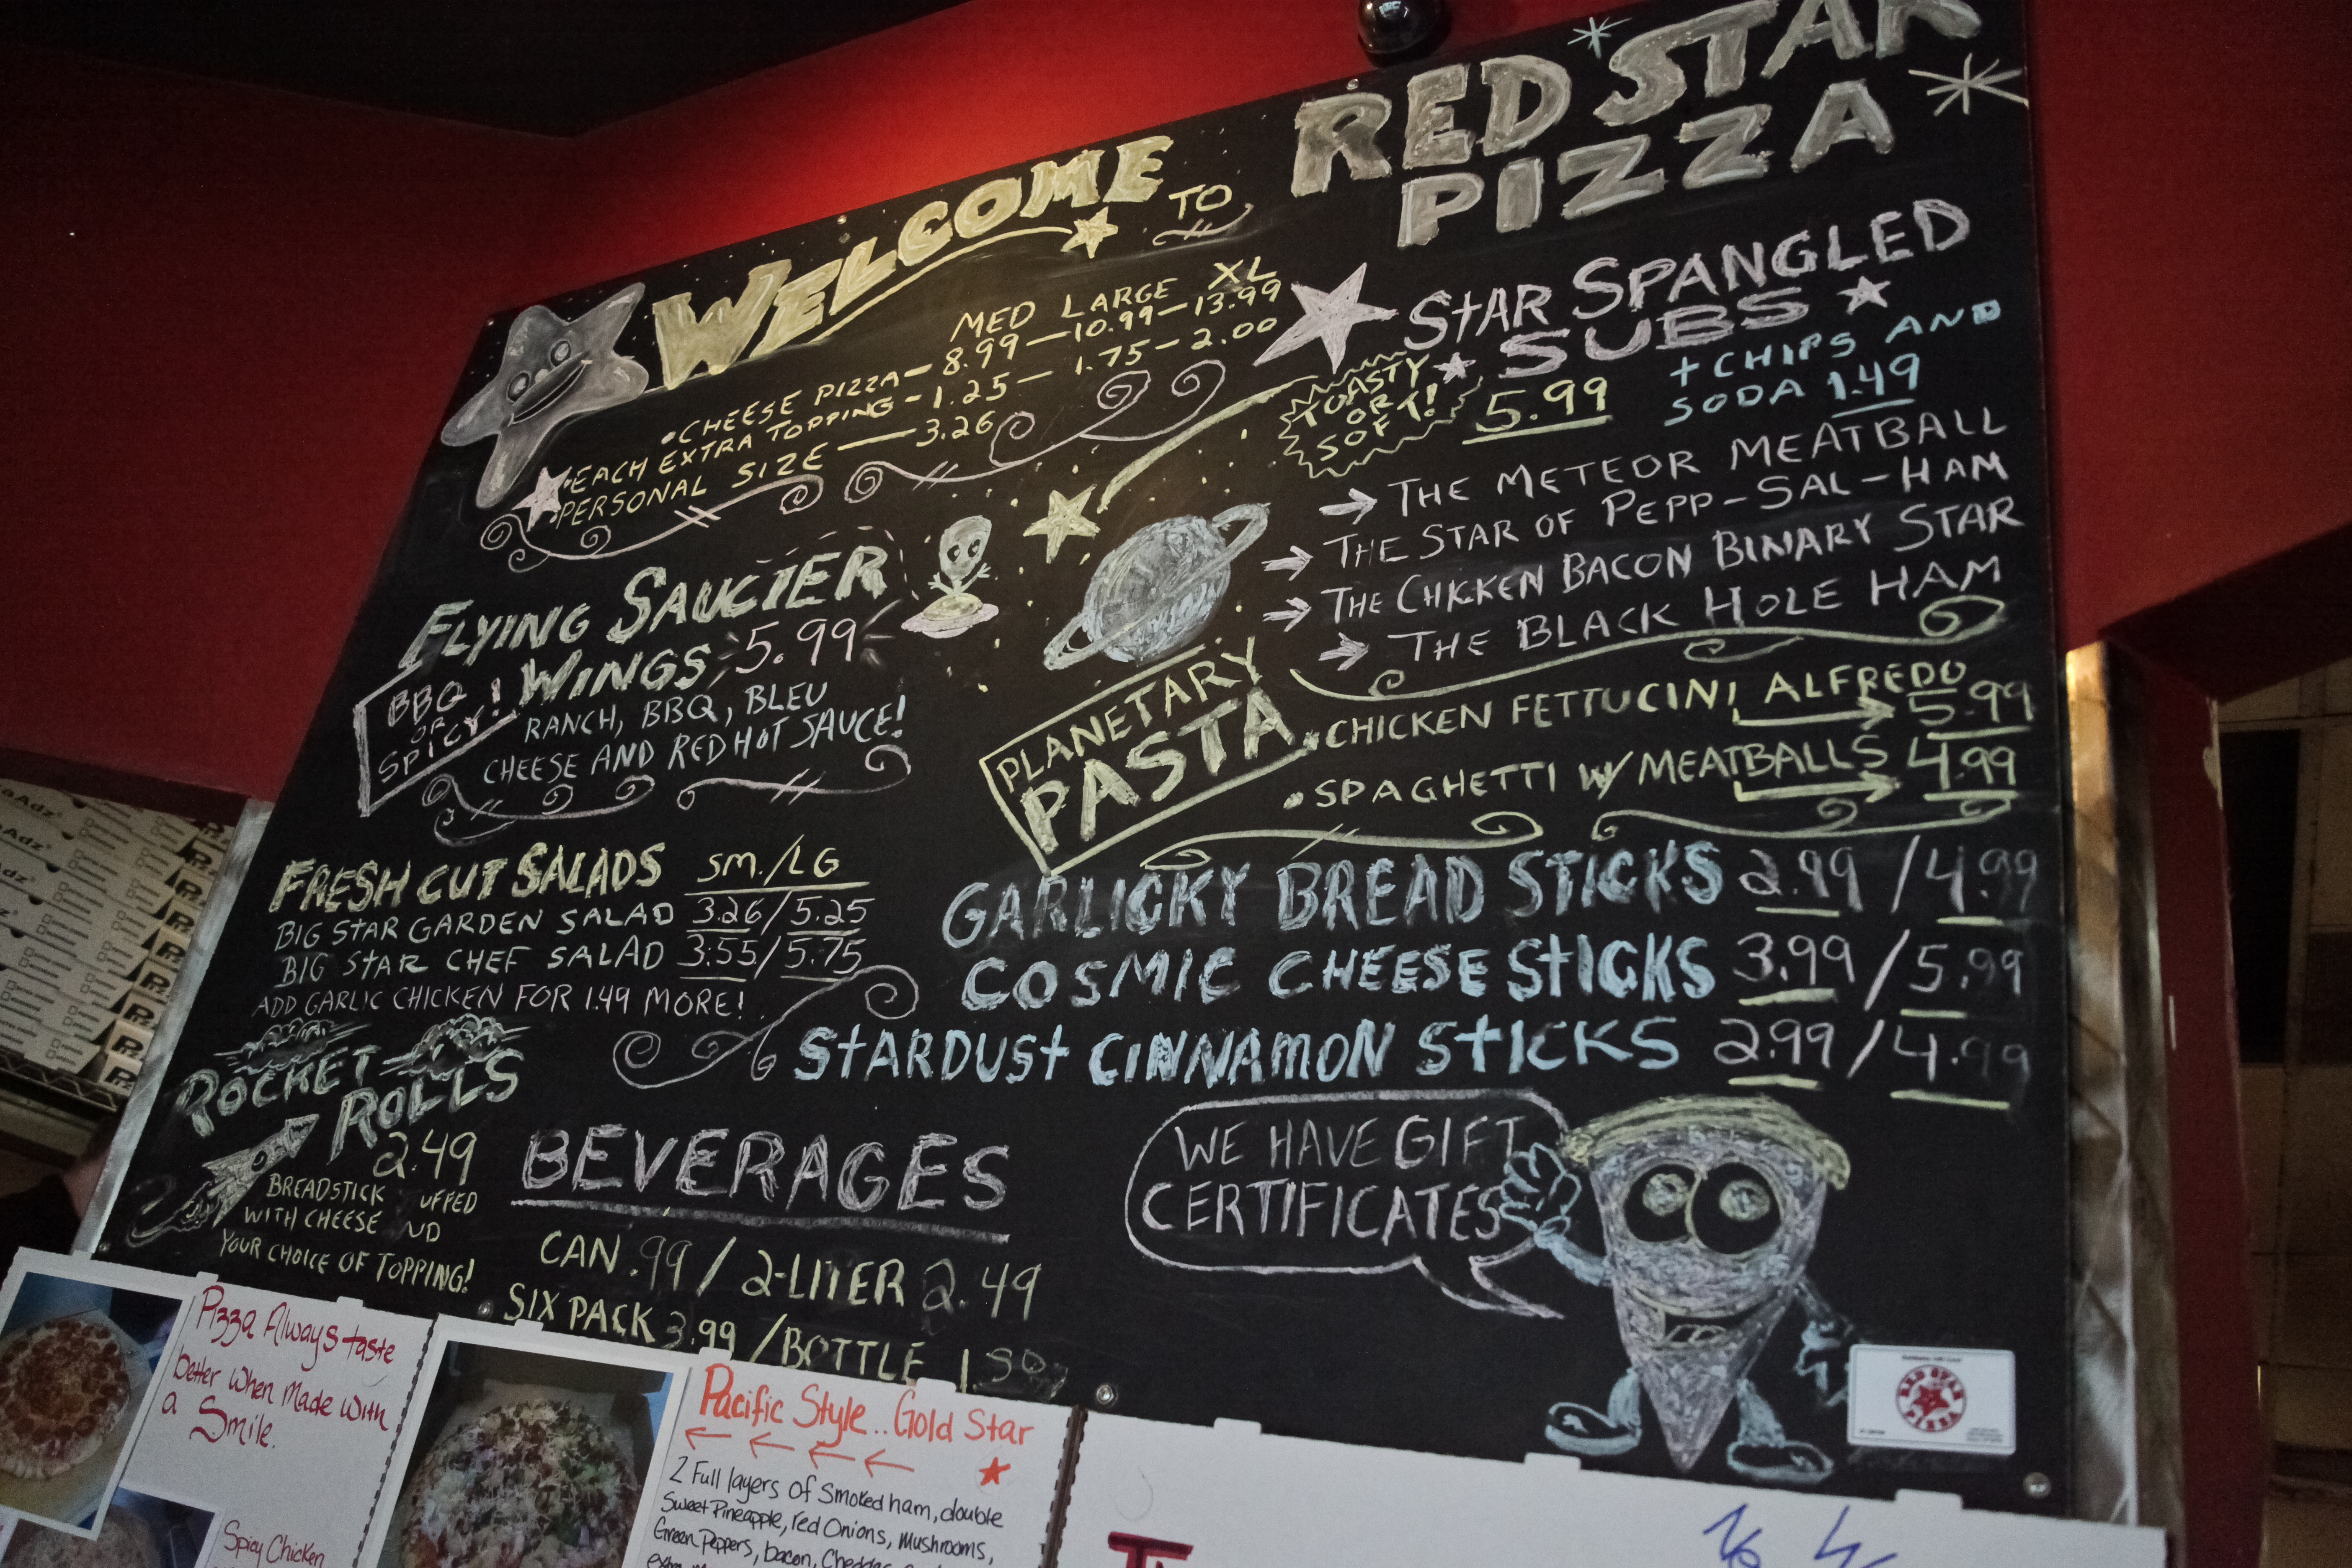 WELCOME TO RED STAR PIZZA
MED LARGE XL
•CHEESE PIZZA—8.99—10.99—13.99
•EACH EXTRA TOPPING-1.25—1.75—2.00
•PERSONAL SIZE—3.26
FLYING SAUCIER
WINGS 5.99
BBQ
OR
SPICY!
RANCH, BBQ, BLEU
CHEESE AND RED HOT SAUCE!
FRESH CUT SALADS SM./LG
BIG STAR GARDEN SALAD 3.26/5.25
BIG STAR CHEF SALAD 3.55/5.75
ADD GARLIC CHICKEN FOR 1.49 MORE!
ROCKET
ROLLS
2.49
BREADSTICK UFFED
WITH CHEESE ND
YOUR CHOICE OF TOPPING!
STAR SPANGLED
SUBS
TOASTY
OR
SOFT!
5.99
+CHIPS AND
SODA 1.49
→ THE METEOR MEATBALL
→ THE STAR OF PEPP-SAL-HAM
→ THE CHICKEN BACON BINARY STAR
→ THE BLACK HOLE HAM
PLANETARY
PASTA
•CHICKEN FETTUCINI ALFREDO
5.99
•SPAGHETTI W/MEATBALLS 4.99
GARLICKY BREAD STICKS 2.99/4.99
COSMIC CHEESE STICKS 3.99/5.99
STARDUST CINNAMON STICKS 2.99/4.99
BEVERAGES
CAN .99/2-LITER 2.49
SIX PACK 3.99/BOTTLE
WE HAVE GIFT
CERTIFICATES
RED STAR
PIZZA
Pizza Always taste
better when made with
a Smile.
Spicy Chicken
Pacific Style..Gold Star
2 Full layers of Smoked ham, double
Sweet Pineapple, red Onions, Mushrooms,
Green Peppers, bacon,